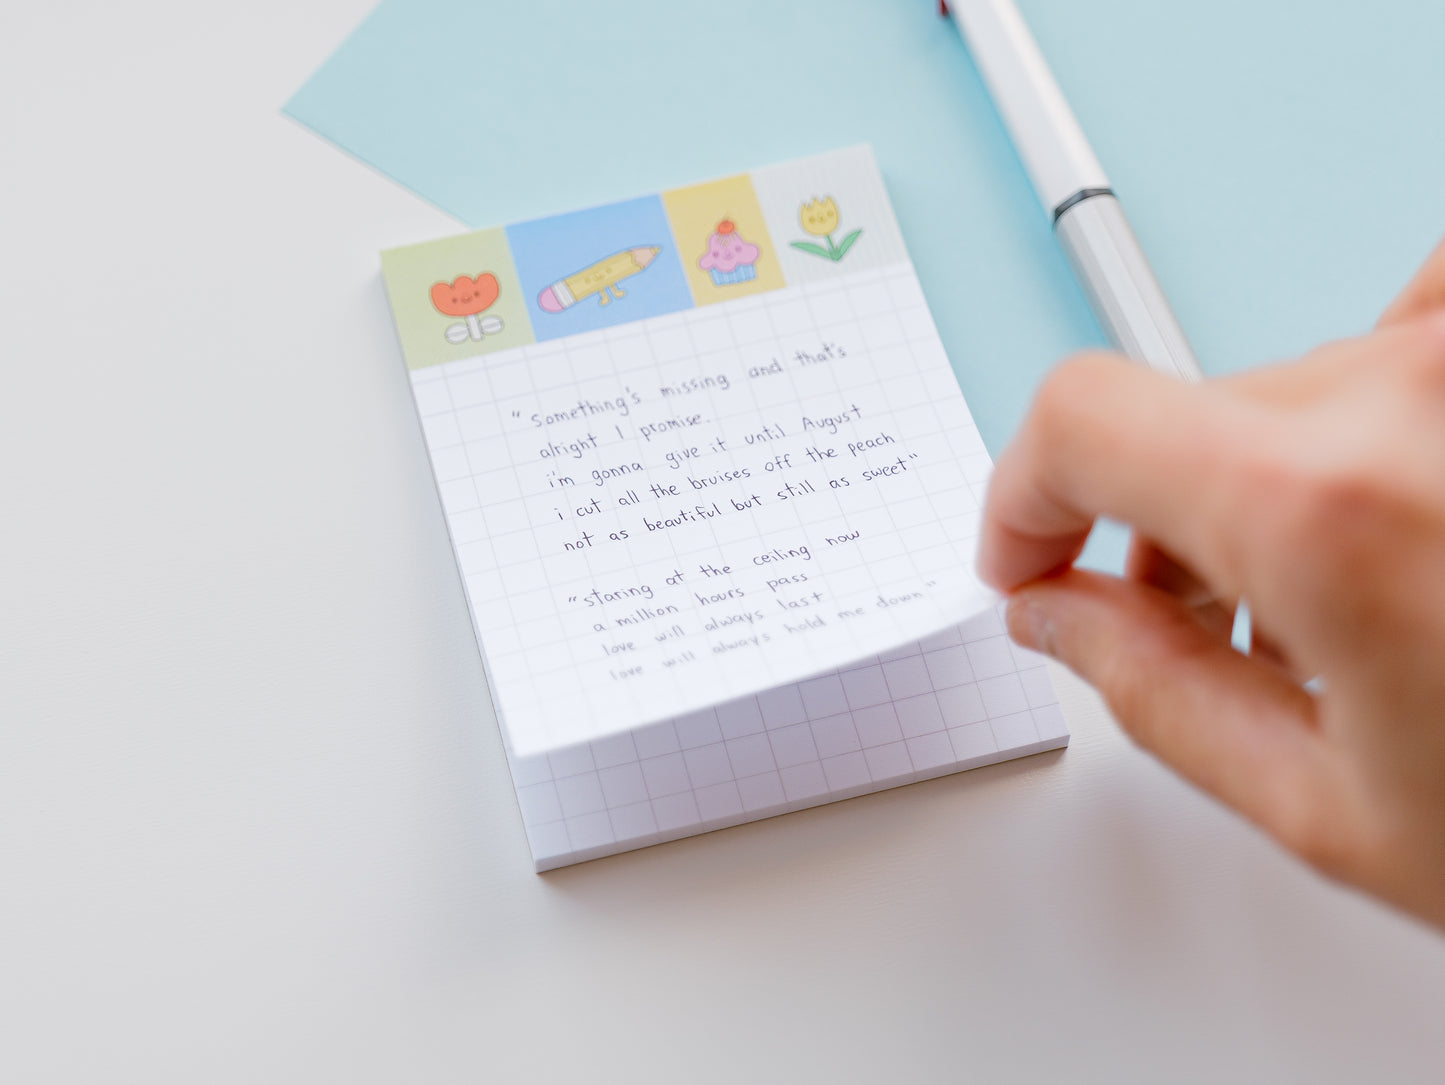 "Something's missing and that's
alright I promise.
i'm gonna give it until August
i cut all the bruises off the peach
not as beautiful but still as sweet"
"staring at the ceiling now
a million hours pass
love will always last
love will always hold me down"